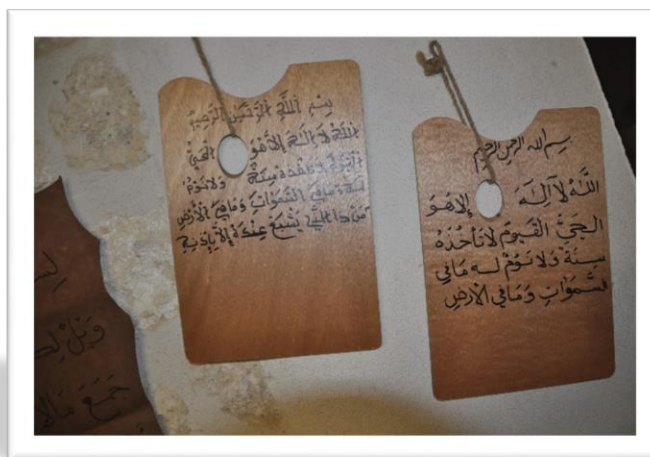 بسم الله الرحمن الرحيم
اللهُ لا إله إلا هو الحيُّ
القيوم لا تأخذه سِنة ولا نوم
له ما في السَّموات وما في الأرض
من ذا الذي يشبع عنده إلا بإذنه
بسم الله الرحمن الرحيم
اللَّهُ لاَ إلَه إلا هُوَ
الحَيُّ القَيومُ لا تَأخذُهُ
سِنة وَلا نَومٌ له مَا في
لسَّموَاتِ وَمَا في الأرضِ
وَيْل لِكـ
جَمَعَ مَالا